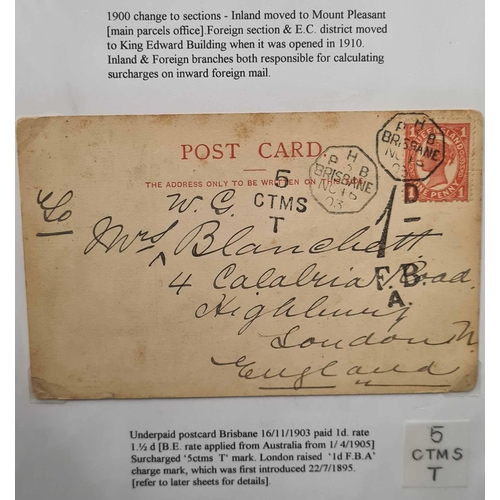 1900 change to sections - Inland moved to Mount Pleasant
[main parcels office].Foreign section & E.C. district moved
to King Edward Building when it was opened in 1910.
Inland & Foreign branches both responsible for calculating
surcharges on inward foreign mail.
POST CARD.
THE ADDRESS ONLY TO BE WRITTEN ON
5
CTMS
T
P H B
BRISBANE
NO 16
03
P H B
BRISBANE
NO 16
03
ONE PENNY
1 D
F.B.
A.
To
W. G.
Mrs Blanchett
4 Calabria Road
Highbury
London N.
England
Underpaid postcard Brisbane 16/11/1903 paid 1d. rate
1.½ d [B.E. rate applied from Australia from 1/ 4/1905]
Surcharged '5ctms T' mark. London raised '1d F.B.A'
charge mark, which was first introduced 22/7/1895.
[refer to later sheets for details].
5
CTMS
T